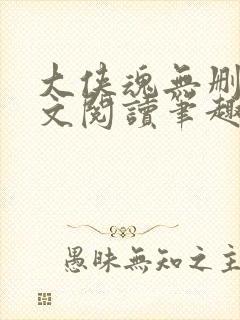 大侠魂無删
文閱讀筆趣
愚昧無知之主